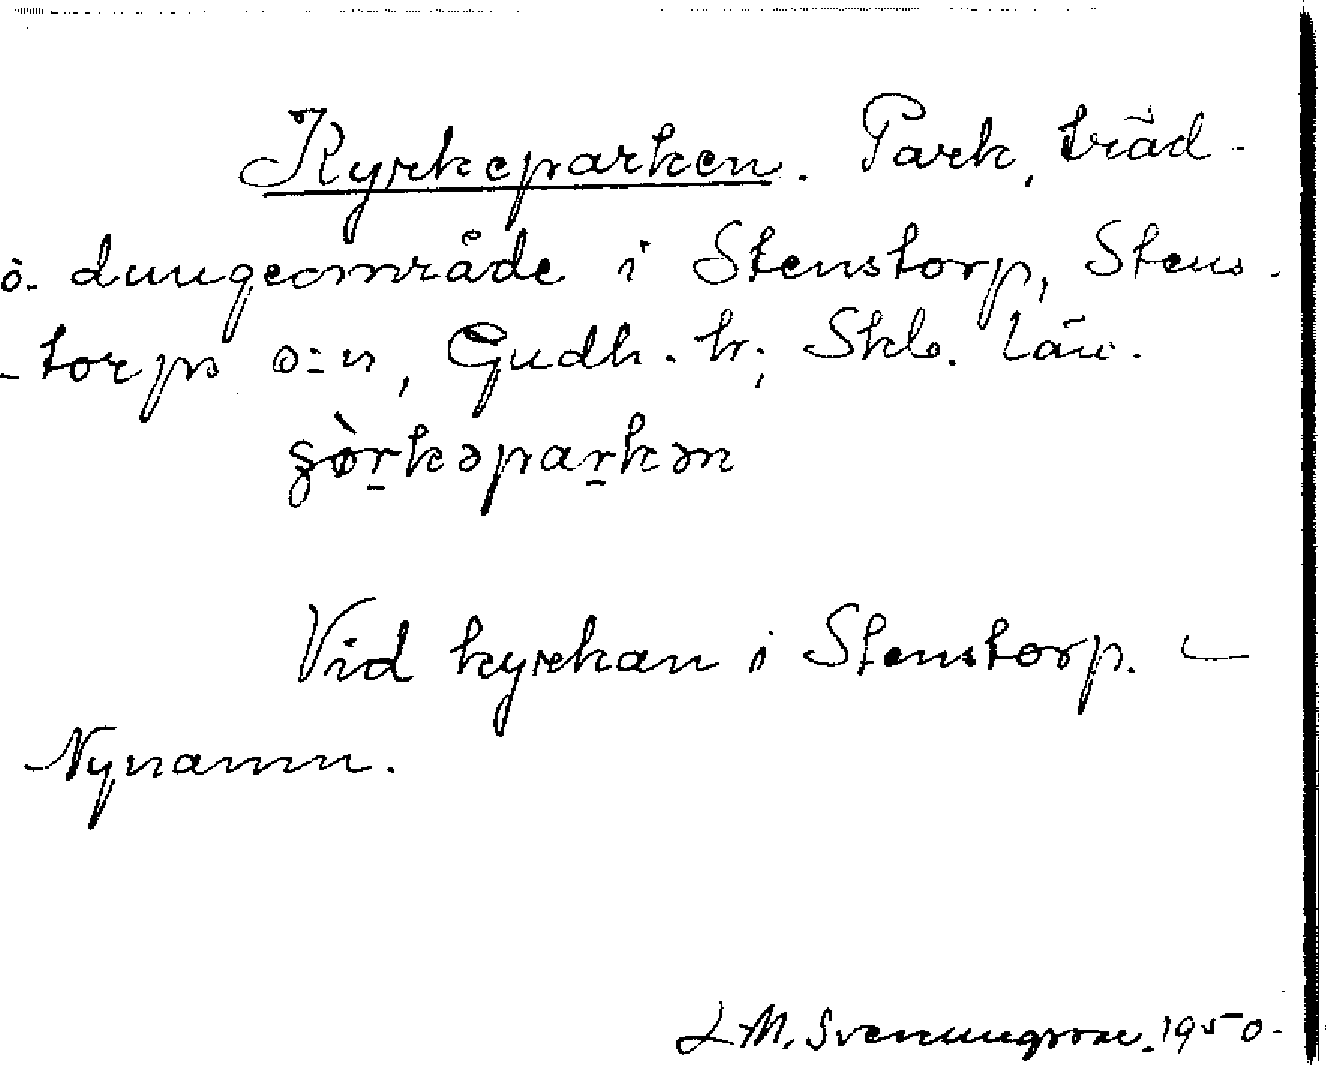 Kyrkeparken. Park, träd-
o. dungeområde i Stenstorp, Stens-
-torps s:n, Gudh. h; Skb. län.
Vid kyrkan i Stenstorp. –
Nynamn.
L.M. Svenungsson. 1950.